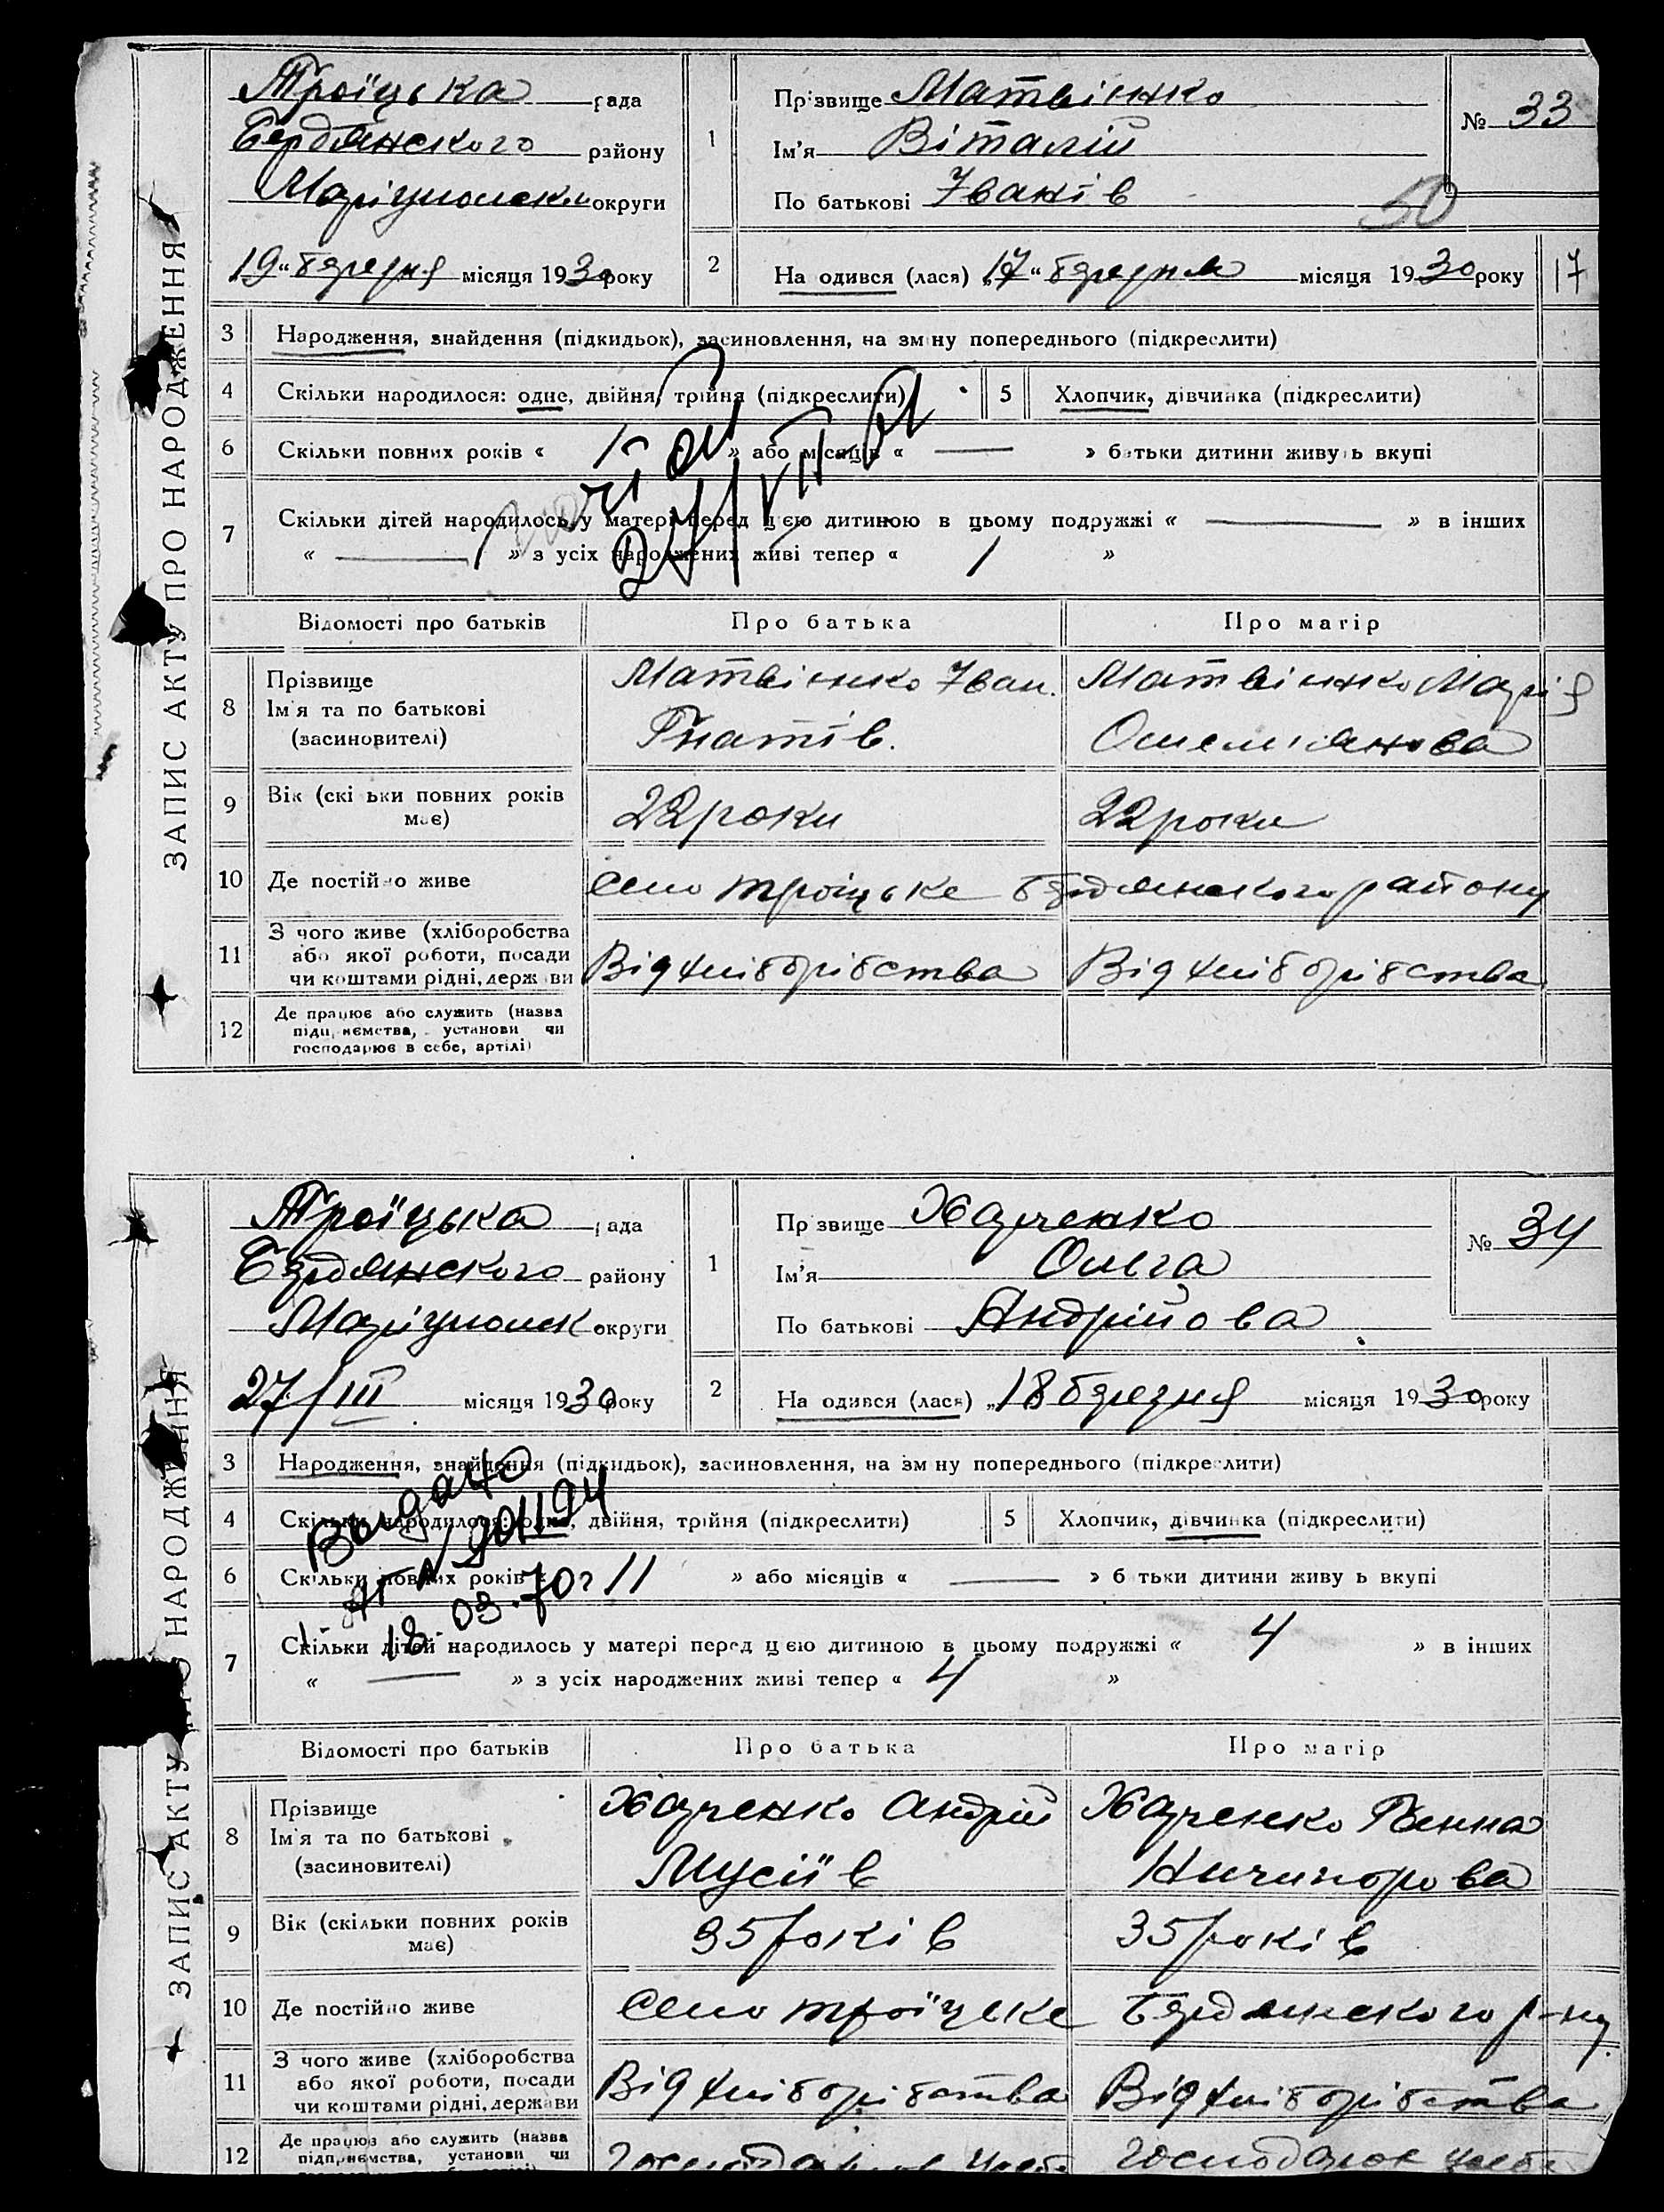 ЗАПИС АКТУ ПРО НАРОДЖЕННЯ
Троїцька рада
Бердянского району
Маріупольск округи
19 „ березня місяця 1930 року
1
Прізвище Матвієнко
Ім'я Віталій
По батькові Іванів
№ 33
50
2
Народився (лася) „17 " березня місяця 1930 року
17
3 Народження, знайдення (підкидьок), засиновлення, на зміну попереднього (підкреслити)
4 Скільки народилося: одне, двійня, трійня (підкреслити)
5 Хлопчик, дівчинка (підкреслити)
6 Скільки повних років « 1 » або місяців « — » батьки дитини живуть вкупі
24/VII
7 Скільки дітей народилось у матері перед цією дитиною в цьому подружжі « — » в інших
« — » з усіх народжених живі тепер « 1 »
Відомості про батьків Про батька Про матір
8 Прізвище
Ім'я та по батькові
(засиновителі)
Матвієнко Іван.
Гнатів.
Матвієнко Марія
Омельянова
9 Вік (скільки повних років
має)
22 роки 22 роки
10 Де постійно живе Село Троїцьке Бердянского району
11 З чого живе (хліборобства
або якої роботи, посади
чи коштами рідні, держави
Від хліборібства Від хліборібства
12 Де працює або служить (назва
підприємства, установи чи
господарює в себе, артілі)
ЗАПИС АКТУ ПРО НАРОДЖЕННЯ
Троїцька рада
Бердянского району
Маріупольск округи
27/III місяця 1930 року
1
Прізвище Харченко
Ім'я Ольга
По батькові Андрійова
№ 34
2
Народився (лася) „18 березня місяця 1930 року
3 Народження, знайдення (підкидьок), засиновлення, на зміну попереднього (підкреслити)
Выдано
4 Скільки народилося: одне, двійня, трійня (підкреслити)
5 Хлопчик, дівчинка (підкреслити)
6 Скільки повних років « 11 » або місяців « — » батьки дитини живуть вкупі
18.03.70г
7 Скільки дітей народилось у матері перед цією дитиною в цьому подружжі « 4 » в інших
« — » з усіх народжених живі тепер « 4 »
Відомості про батьків Про батька Про матір
8 Прізвище
Ім'я та по батькові
(засиновителі)
Харченко Андрій
Мусіїв
Харченко Ганна
Ничипорова
9 Вік (скільки повних років
має)
35 років 35 років
10 Де постійно живе Село Троїцьке Бердянского р-ну.
11 З чого живе (хліборобства
або якої роботи, посади
чи коштами рідні, держави
Від хліборібства Від хліборібства
12 Де працює або служить (назва
підприємства, установи чи